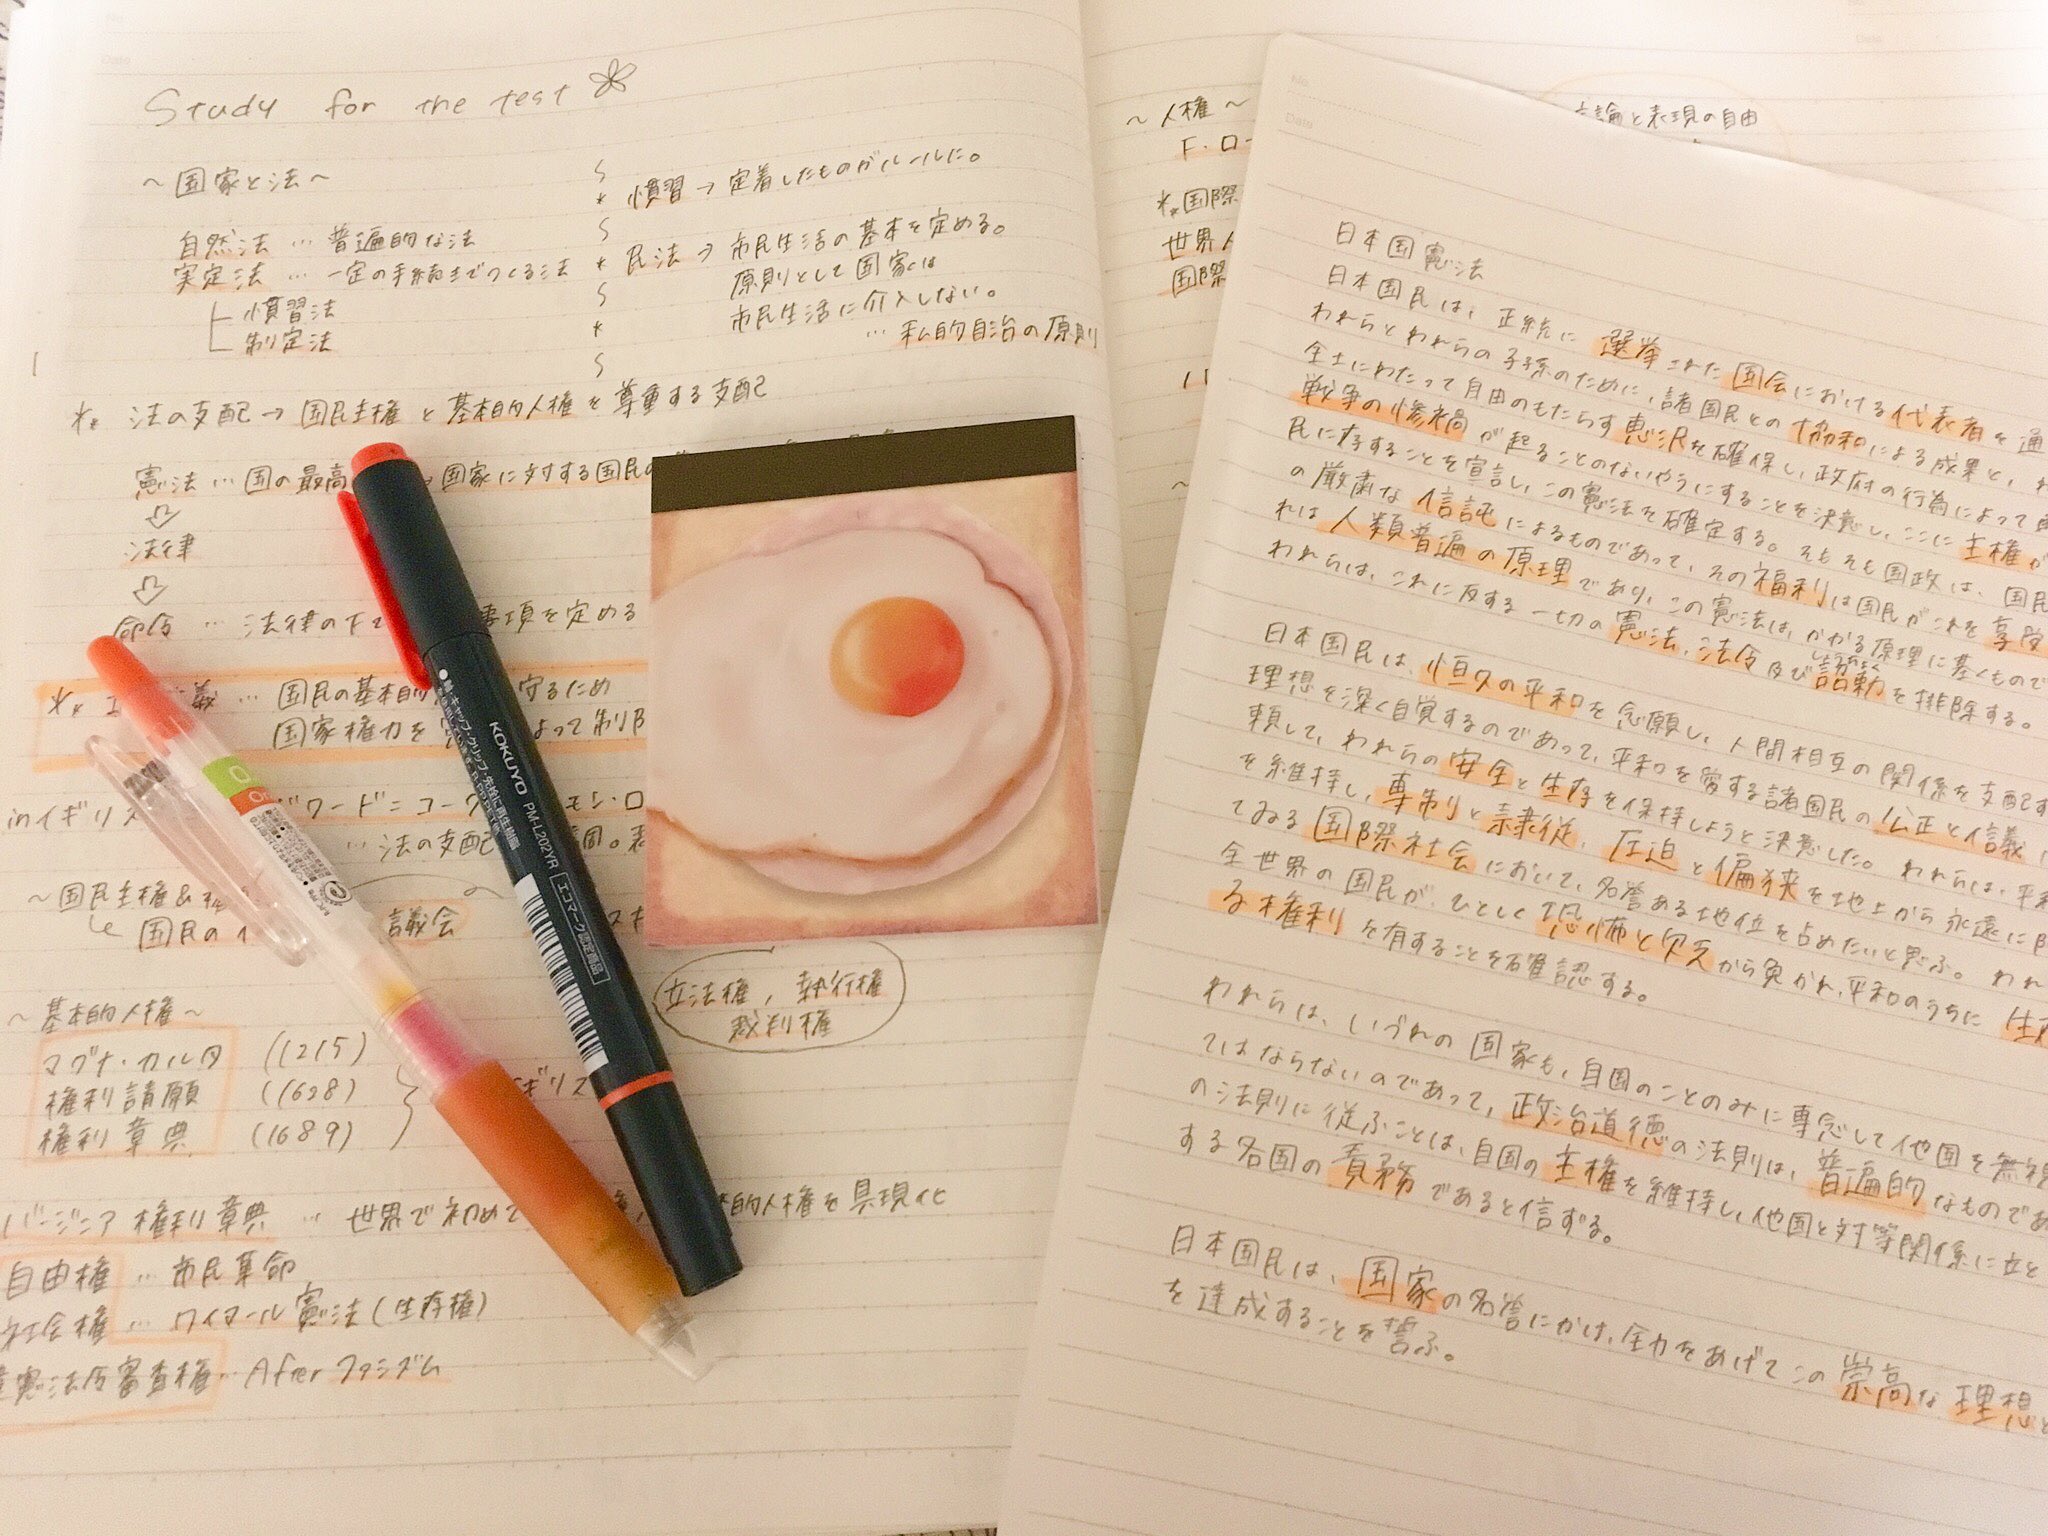 Study for the test
～国家と法～
自然法 … 普遍的な法
実定法 … 一定の手続きでつくる法
慣習法
制定法
慣習 → 定着したものがルールに。
民法 → 市民生活の基本を定める。
原則として国家は
市民生活に介入しない。
… 私的自治の原則
法の支配 → 国民主権と基本的人権を尊重する支配
憲法 … 国の最高
国家に対する国民の
法律
命令 … 法律の下で
事項を定める
義 … 国民の基本的
守るため
国家権力を
よって制限
inイギリス
ドワード＝コーク
モン・ロ
… 法の支配
～国民主権＆
国民の
議会
立法権，執行権
裁判権
～基本的人権～
マグナ・カルタ (1215)
権利請願 (1628)
権利章典 (1689)
ギリス
バージニア権利章典 … 世界で初めて
的人権を具現化
自由権 … 市民革命
社会権 … ワイマール憲法(生存権)
違憲法令審査権 … After ファシズム
KOKUYO PM-L202YR エコマーク認定商品
～人権～
言論と表現の自由
F・ロー
国際
世界人
国際
No.
Date
日本国憲法
日本国民は、正統に選挙された国会における代表者を通
われらとわれらの子孫のために、諸国民との協和による成果と、わ
全土にわたって自由のもたらす恵沢を確保し、政府の行為によって再
戦争の惨禍が起ることのないやうにすることを決意し、ここに主権が
民に存することを宣言し、この憲法を確定する。そもそも国政は、国民
の厳粛な信託によるものであって、その福利は国民がこれを享受
れは人類普遍の原理であり、この憲法は、かかる原理に基くもので
われらは、これに反する一切の憲法、法令及び詔勅を排除する。
日本国民は、恒久の平和を念願し、人間相互の関係を支配す
理想を深く自覚するのであって、平和を愛する諸国民の公正と信義
頼して、われらの安全と生存を保持しようと決意した。われらは、平和
を維持し、専制と隷従、圧迫と偏狭を地上から永遠に除
てゐる国際社会において、名誉ある地位を占めたいと思ふ。われ
全世界の国民が、ひとしく恐怖と欠乏から免かれ、平和のうちに生存
る権利を有することを確認する。
われらは、いづれの国家も、自国のことのみに専念して他国を無視
てはならないのであって、政治道徳の法則は、普遍的なものであ
の法則に従ふことは、自国の主権を維持し、他国と対等関係に立と
する各国の責務であると信ずる。
日本国民は、国家の名誉にかけ、全力をあげてこの崇高な理想と
を達成することを誓ふ。